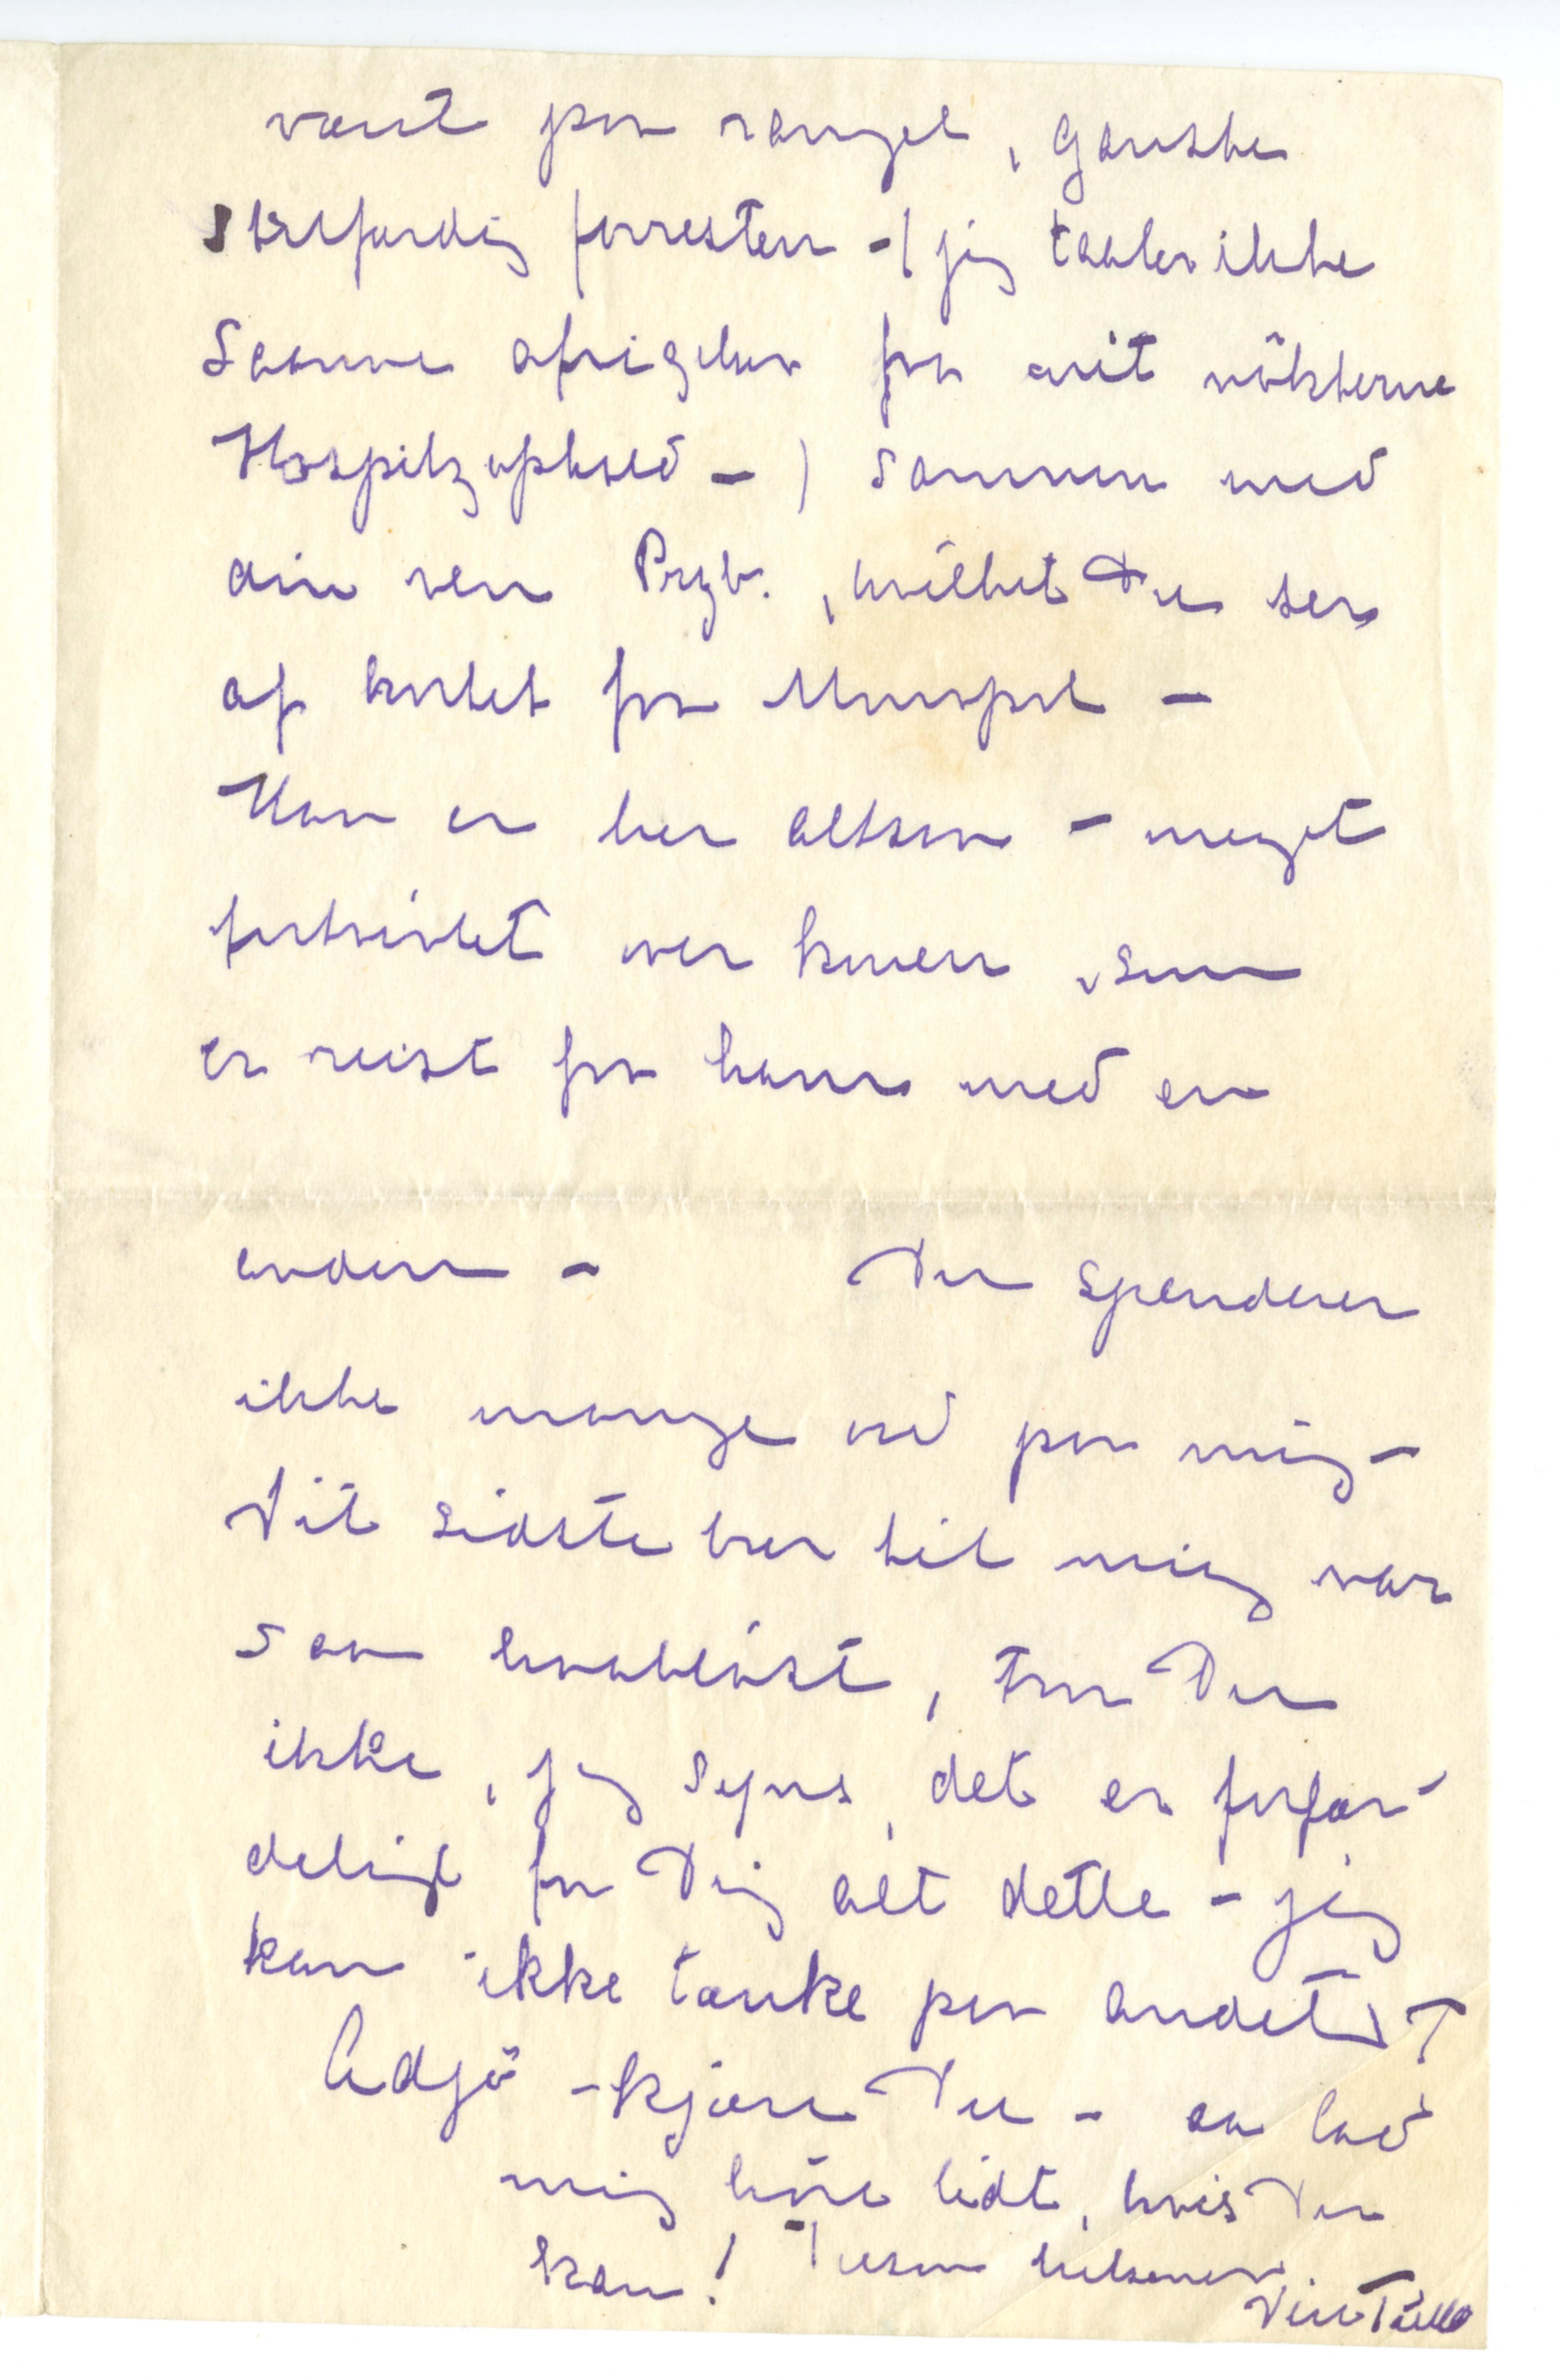 været paa rangel, ganske
skrøfærdig forresten - (jeg taaler ikke
saanne afvigelser fra mit nøkterne
Hospitzophold -) sammen med
din ven Przb., hvilket Du ser
af kortet fra Monopol -
Han er her altsaa - meget
fortvivlet over konen, som
er reist fra ham med en
anden - Du spenderer
ikke mange ord paa mig -
Dit sidste brev til mig var
saa haabløst, tro Du
ikke, jeg synes, det er forfær-
deligt for Dig alt dette - jeg
kan ikke tænke paa andet
Adjø - kjære Du - aa lad
mig høre lidt, hvis Du
kan! Tusen hilsener.
Din Tulla